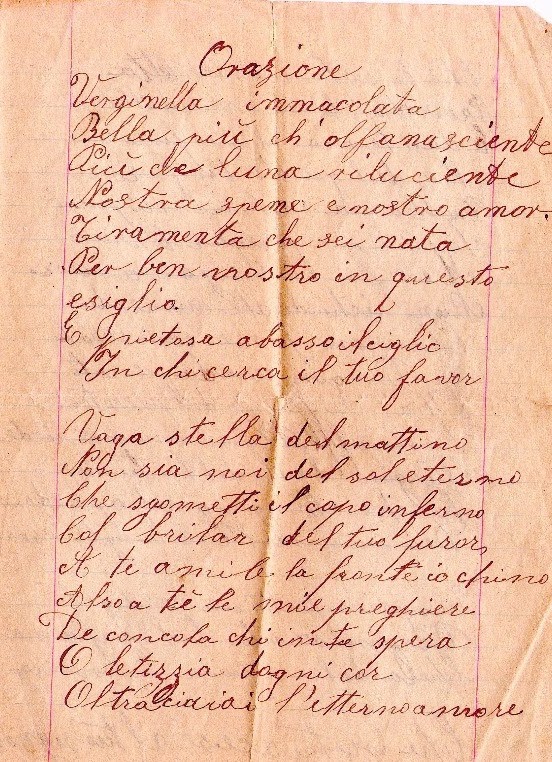 Orazione
Verginella immacolata
Bella più ch'olfanasciente
Più de luna riluciente
Nostra speme e nostro amor.
Tiramenta che sei nata
Per ben nostro in questo
esiglio.
E pietosa abasso il ciglio
In chi cerca il tuo favor
Vaga stella del mattino
Non sia noi del sol eterno
Che sgometti il capo inferno
Col brilar del tuo furor,
A te amile la fronte io chino
Alsoa te le mie preghiere
De concola chi in te spera
O letizzia dogni cor
l'etternoamore